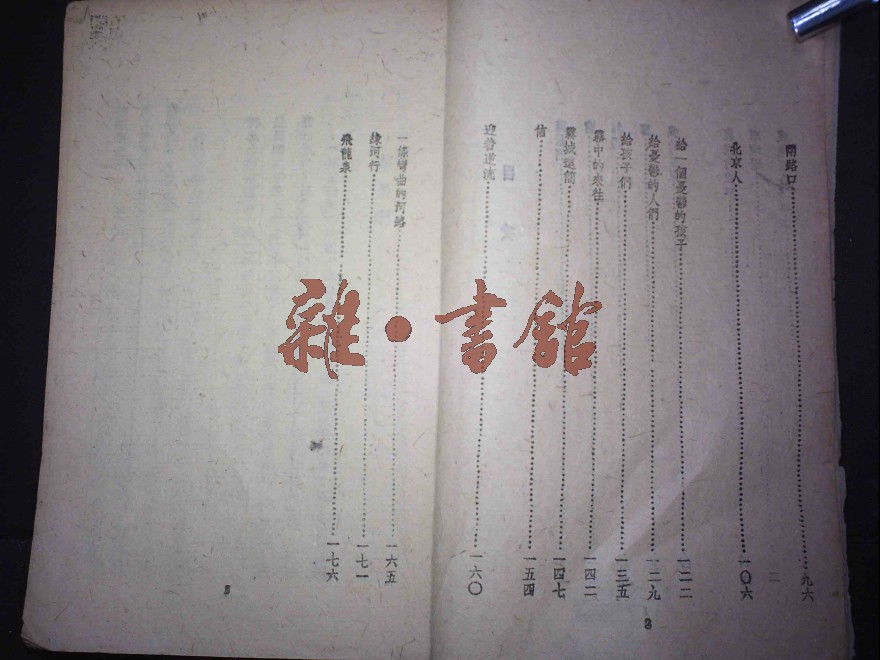 閘路口……九六
北京人……一〇六
給一個憂鬱的孩子……一二二
給憂鬱的人們……一二九
給孩子們……一三五
霧中的來往……一四二
霧城通簡……一四七
信……一五四
迎着逆流……一六〇
3
一條彎曲的河路……一六五
練河行……一七一
飛龍泉……一七六
雜·書館